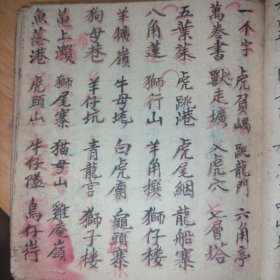 一个字 虎賀嵎 跳龍門 六角亭
萬卷書 獸走壙 入虎穴 七層塔
五葉菜 虎跳港 虎尾綑 龍船寨
八角蓮 獅行山 羊角撰 獅仔樓
羊犢嶺 牛母塘 白虎廟 龜頭寨
狗母巷 羊仔坑 青龍宮 獅子樓
菴上瀨 獅尾寨 猫母山 雞庵嶺
魚落港 虎頭山 牛仔隘 鳥仔岃